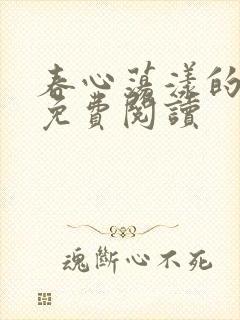 春心蕩漾的
免費閱讀
魂斷心不死